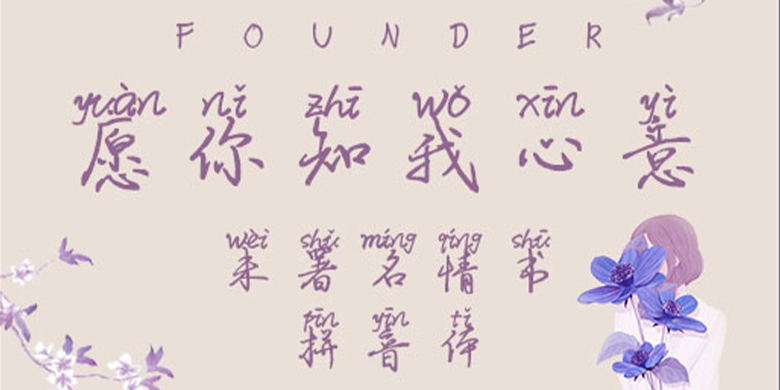 FOUNDER
yuàn nǐ zhī wǒ xīn yì
愿你知我心意
wèi shǔ míng qíng shū
未署名情书
pīn yīn tǐ
拼音体